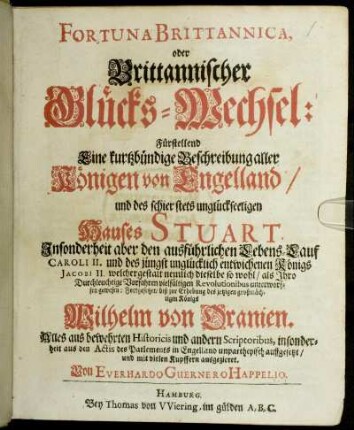 FORTUNA BRITTANNICA,
oder
Brittannischer
Glücks-Wechsel:
Fürstellend
Eine kurtzbündige Beschreibung aller
Königen von Engelland/
und des schier stets unglückseeligen
Hauses STUART.
Insonderheit aber den ausführlichen Lebens-Lauf
CAROLI II. und des jüngst unglücklich entwichenen Königs
JACOBI II. welchergestalt nemlich dieselbe so wohl/ als Ihro
Durchleuchtige Vorfahren vielfältigen Revolutionibus unterworf-
fen gewesen: Fortgesetzet biß zur Erhebung des jetzigen großmäch-
tigen Königs
Wilhelm von Oranien.
Alles aus bewehrten Historicis und andern Scriptoribus, insonder-
heit aus den Actis des Parlements in Engelland unpartheyisch auffgesetzt/
und mit vielen Kupffern ausgezieret.
Von EVERHARDO GUERNERO HAPPELIO.
HAMBURG,
Bey Thomas von VViering, im gülden A, B, C.